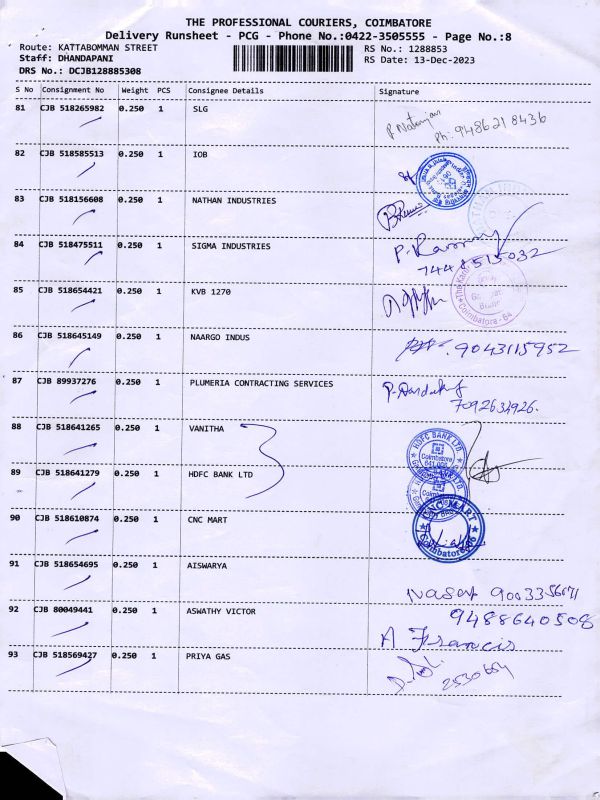 THE PROFESSIONAL COURIERS, COIMBATORE
Delivery Runsheet - PCG - Phone No.:0422-3505555 - Page No.:8
Route: KATTABOMMAN STREET RS No.: 1288853
Staff: DHANDAPANI RS Date: 13-Dec-2023
DRS No.: DCJB128885308
S No Consignment No Weight PCS Consignee Details Signature
81 CJB 518265982 0.250 1 SLG
P. Natarajan
Ph: 9486218436
82 CJB 518585513 0.250 1 IOB
83 CJB 518156608 0.250 1 NATHAN INDUSTRIES
84 CJB 518475511 0.250 1 SIGMA INDUSTRIES
7448515032
85 CJB 518654421 0.250 1 KVB 1270
Coimbatore - 64
86 CJB 518645149 0.250 1 NAARGO INDUS 9043115952
87 CJB 89937276 0.250 1 PLUMERIA CONTRACTING SERVICES
7092634926.
88 CJB 518641265 0.250 1 VANITHA
HDFC BANK LTD
Coimbatore
89 CJB 518641279 0.250 1 HDFC BANK LTD
90 CJB 518610874 0.250 1 CNC MART
CNC MART
Coimbatore
91 CJB 518654695 0.250 1 AISWARYA
92 CJB 80049441 0.250 1 ASWATHY VICTOR 9488640508
A Francis
93 CJB 518569427 0.250 1 PRIYA GAS
2530654